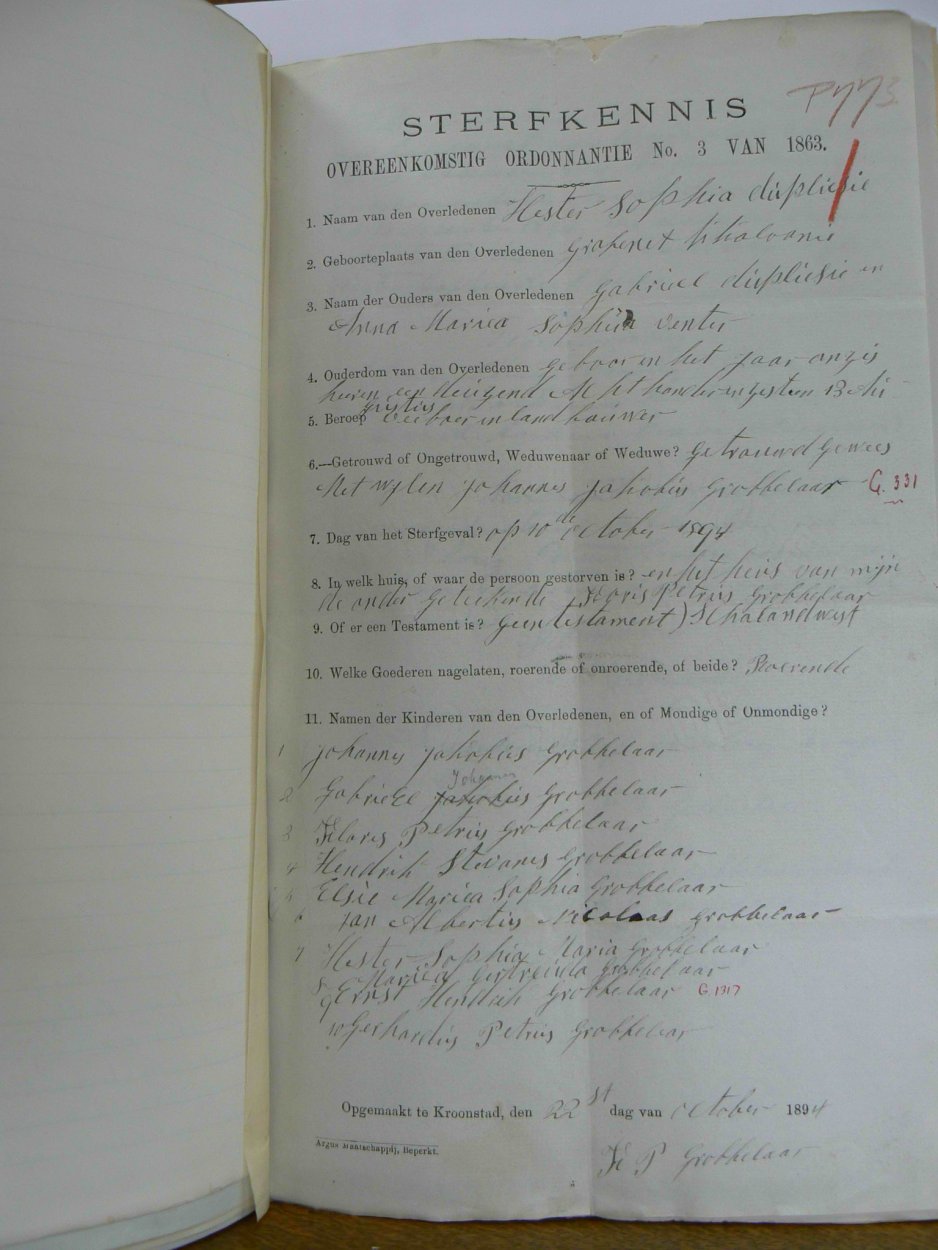 P773
STERFKENNIS
OVEREENKOMSTIG ORDONNANTIE No. 3 VAN 1863.
1. Naam van den Overledenen Hester Sophia duplicsie
2. Geboorteplaats van den Overledenen
3. Naam der Ouders van den Overledenen Gabriel duplicsie en
Anna Mariea Sophia venter
4. Ouderdom van den Overledenen geboor en het jaar onzis
heren een duizend Acht honder
5. Beroep veeboer en land bouwer
6.—Getrouwd of Ongetrouwd, Weduwenaar of Weduwe? getrouwd gewees
Met wylen johannes jakobus grobbelaar G. 331
7. Dag van het Sterfgeval? op 10de october 1894
8. In welk huis, of waar de persoon gestorven is? en het heis van mijn
de onder geteekende Floris Petrus grobbelaar
9. Of er een Testament is? geen testament) Schalandwyst
10. Welke Goederen nagelaten, roerende of onroerende, of beide? Roerende
11. Namen der Kinderen van den Overledenen, en of Mondige of Onmondige?
1 johannes jakobus grobbelaar
Johannes
2 Gabrieel jakobus grobbelaar
3 Floris Petrus grobbelaar
4 Hendrik Stevanes grobbelaar
5 Elsie Mariea Sophia Grobbelaar
6 Jan Albertus Nicolaas grobbelaar
7 Hester Sophia Maria Grobbelaar
8 Mariea Gertreida Grobbelaar
9 Ernst Hendrik Grobbelaar G. 1317
10 Gerhardus Petrus Grobbelaar
Opgemaakt te Kroonstad, den 22st dag van October 1894
Argus Maatschappij, Beperkt.
F P Grobbelaar